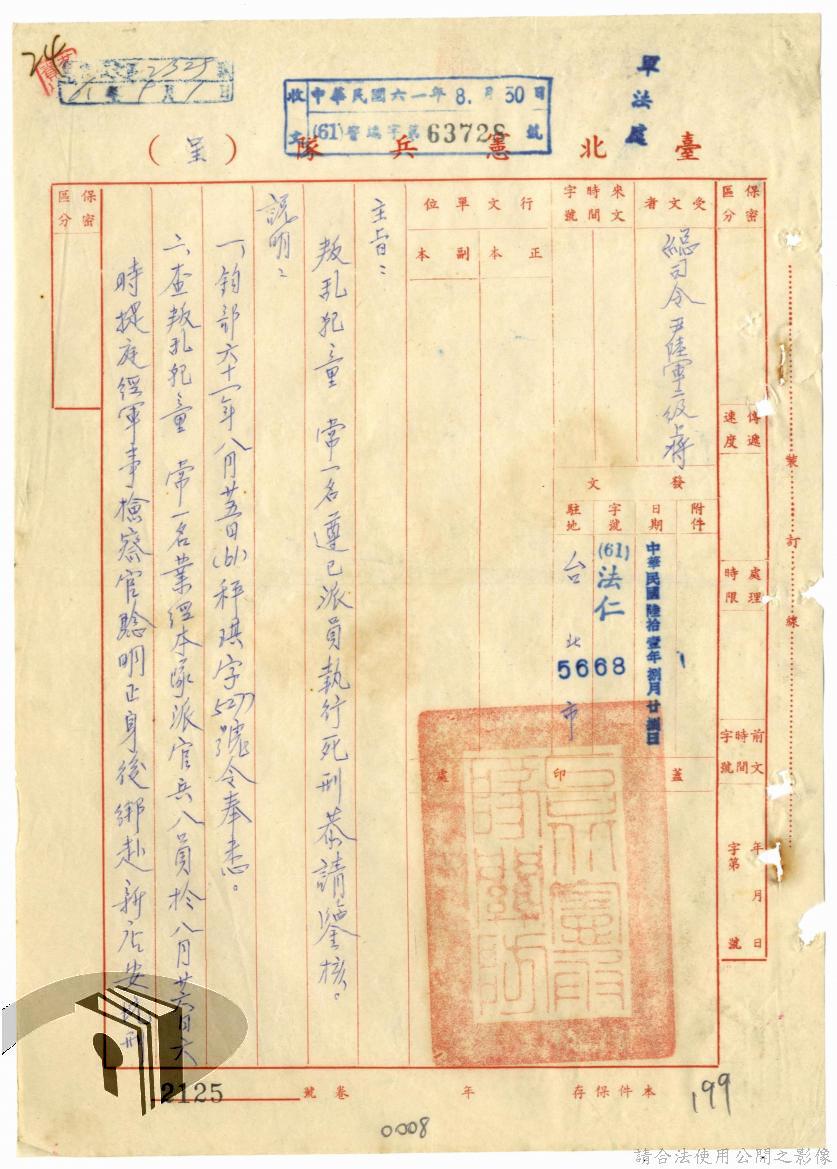 24
2525
61年9月1日
收文
中華民國六一年8.月30日
(61)警端字第63728號
軍法處
臺北憲兵隊（呈）
保密區分
傳遞速度
處理時限
前文時間字號
年月日
字第號
受文者
總司令尹陸軍二級上將
來文時間字號
行文單位
正本
副本
發文
附件
日期
中華民國陸拾壹年捌月廿捌日
字號
(61)法仁
5668
駐地
台北市
蓋印處
主旨：
叛亂犯童 常一名遵已派員執行死刑恭請鑒核。
說明：
一、鈞部六十一年八月廿五日(61)秤琪字527號令奉悉。
二、查叛亂犯童 常一名業經本隊派官兵八員於八月廿六日六
時提庭經軍事檢察官驗明正身後綁赴新店安坑刑
保密區分
裝訂線
本件保存 年 卷 號
2125
199
0008
請合法使用公開之影像